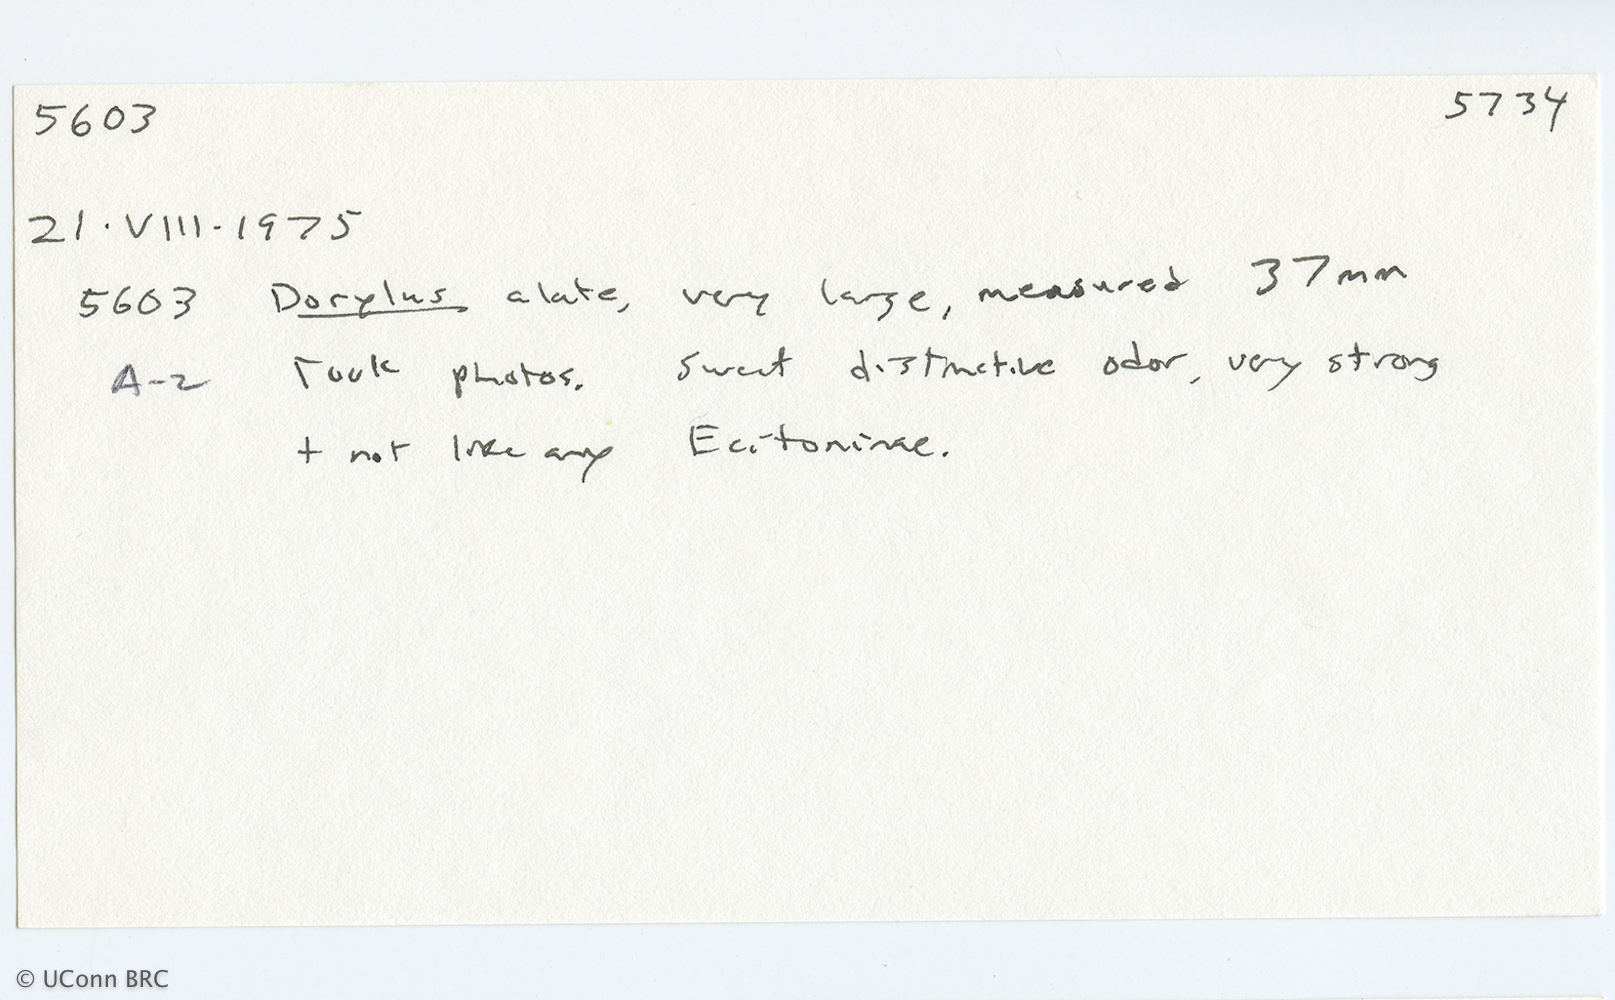 5603 5734
21·VIII·1975
5603 Dorylus alate, very large, measured 37mm
A-2 Took photos. Sweet distinctive odor, very strong
+ not like any Ecitoninae.
© UConn BRC